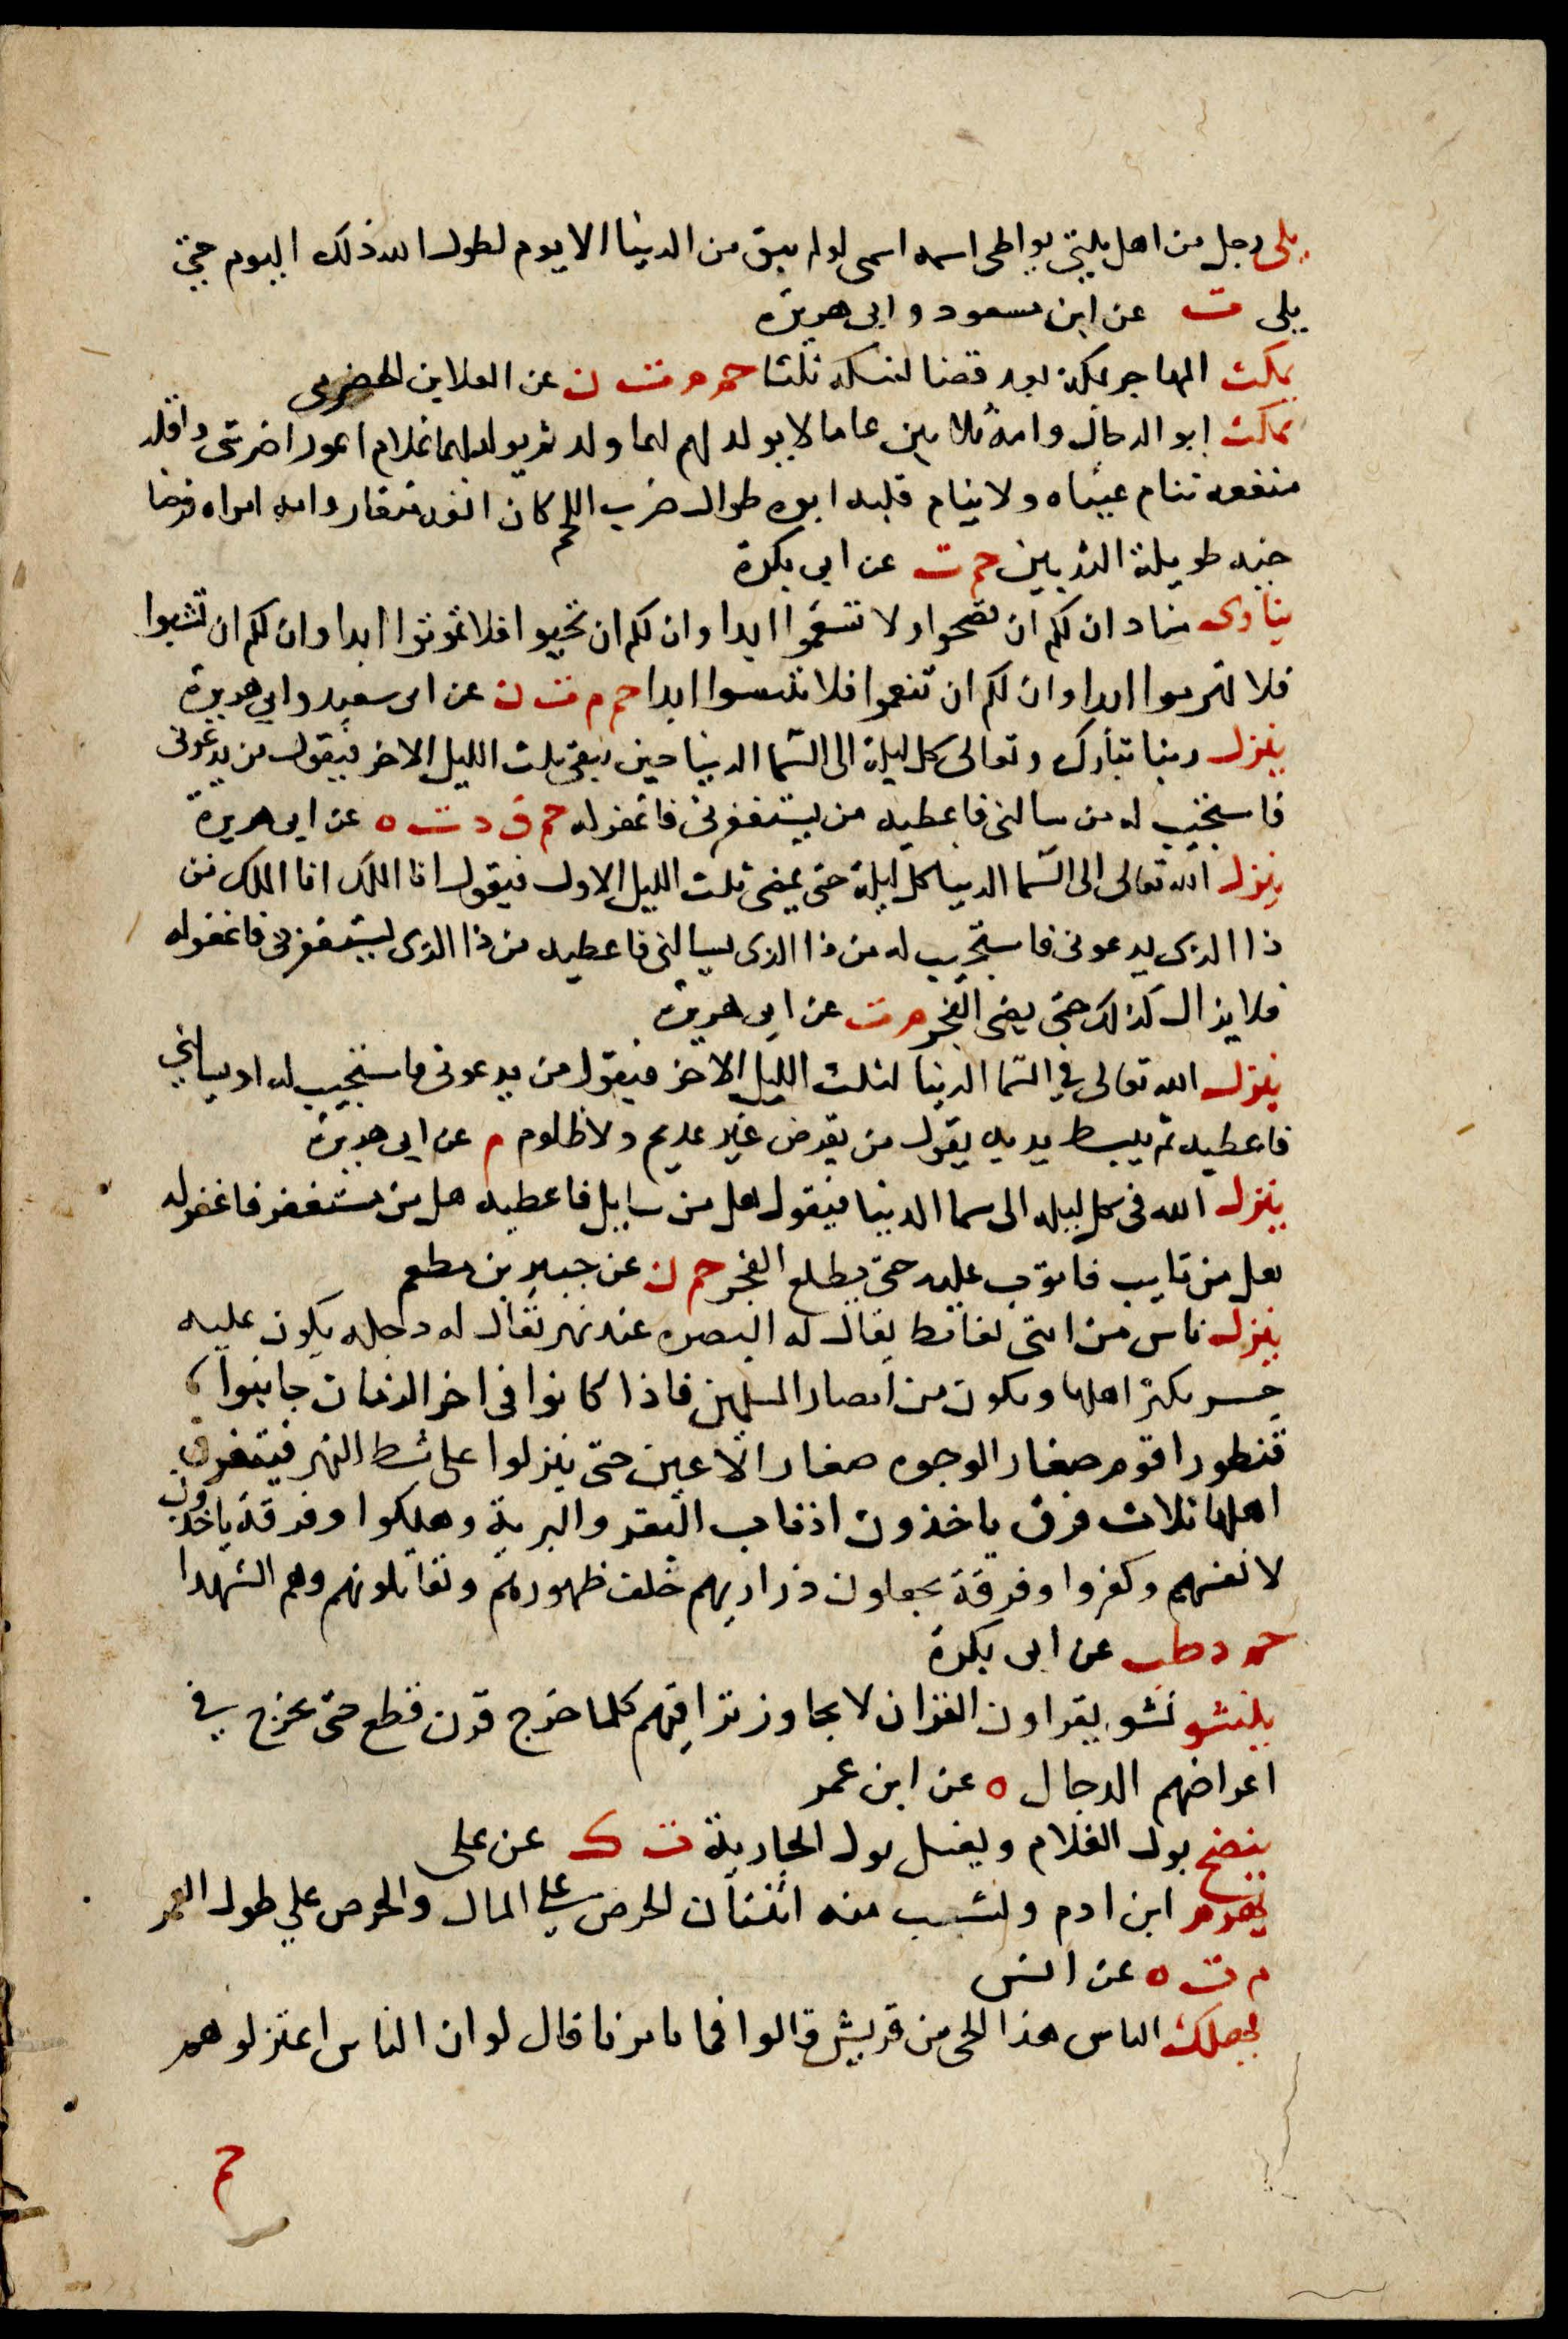 يلي رجل من اهل بيتي يواطى اسمه اسمى لو لم يبق من الدينا الا يوم لطول الله ذلك اليوم حتى
يلى ت عن ابن مسعود وابى هريرة
يمكث المهاجر بمكة بعد قضا لنسكه ثلثا حم م ت ن عن العلا بن الحضرمى
يمكث ابو الدجال وامه ثلاثين عاما لا يولد لهم لهما ولد ثم يولد لهما غلام اعور اضر شى واقله
منفعه تنام عيناه ولا ينام قلبه ابوه طوال ضرب اللحم كان انفه منقار وامه امراه فرضا
خيه طويلة الثديين حم ت عن ابى بكرة
ينادى مناد ان لكم ان تصحوا ولا تسقموا ابدا وان لكم ان تحيوا فلا تموتوا ابدا وان لكم ان تشبوا
فلا تهرموا ابدا وان لكم ان تنعموا فلا تبئسوا ابدا حم م ت ن عن ابى سعيد وابي هريرة
ينزل ربنا تبارك وتعالى كل ليلة الى السما الدينا حين يبقى ثلث الليل الاخر فيقول من يدعونى
فاستجيب له من سالنى فاعطيه من يستغفرنى فاغفر له حم ق د ت ه عن ابى هريرة
ينزل الله تعالى الى السما الدينا كل ليلة حتى يمضى ثلث الليل الاول فيقول انا الملك انا الملك من
ذا الذى يدعونى فاستجيب له من ذا الذى يسالنى فاعطيه من ذا الذى يستغفرنى فاغفر له
فلا يزال كذلك حتى يضى الفجر م ت عن ابى هريرة
ينزل الله تعالى في السما الدنيا لثلث الليل الاخر فيقول من يدعونى فاستجيب له او يسالني
فاعطيه ثم يبسط يديه يقول من يقرض غير عديم ولا ظلوم م عن ابى هريرة
ينزل الله فى كل ليله الى سما الدنيا فيقول هل من سايل فاعطيه هل من مستغفر فاغفر له
هل من تايب فاتوب عليه حتى يطلع الفجر حم ن عن جبير بن مطعم
ينزل ناس من امتى بغائط يقال له البصره عند نهر يقال له دجله يكون عليه
جسر يكثر اهلها ويكون من امصار المسلمين فاذا كانوا فى اخر الزمان جا بنوا
قنطورا قوم صغار الوجوه صغار الاعين حتى ينزلوا على شط النهر فيتفرق
اهلها ثلاث فرق ياخذون اذناب البقر والبرية وهلكوا وفرقة ياخذون
لانفسهم وكفروا وفرقة يجعلون ذراريهم خلف ظهورهم وتقاتلونهم وهم الشهدا
حم د طب عن ابى بكرة
ينشو نشو يقراون القران لا يجاوز تراقيهم كلما خرج قرن قطع حتى يخرج في
اعراضهم الدجال ه عن ابن عمر
ينضح بول الغلام ويغسل بول الجارية ت ك عن على
يهرم ابن ادم ولتشب منه اثنتان الحرص علي المال والحرص علي طول العمر
م ت ه عن انس
يهلك الناس هذا الحى من قريش قالوا فما تامرنا قال لو ان الناس اعتزلوهم
حم